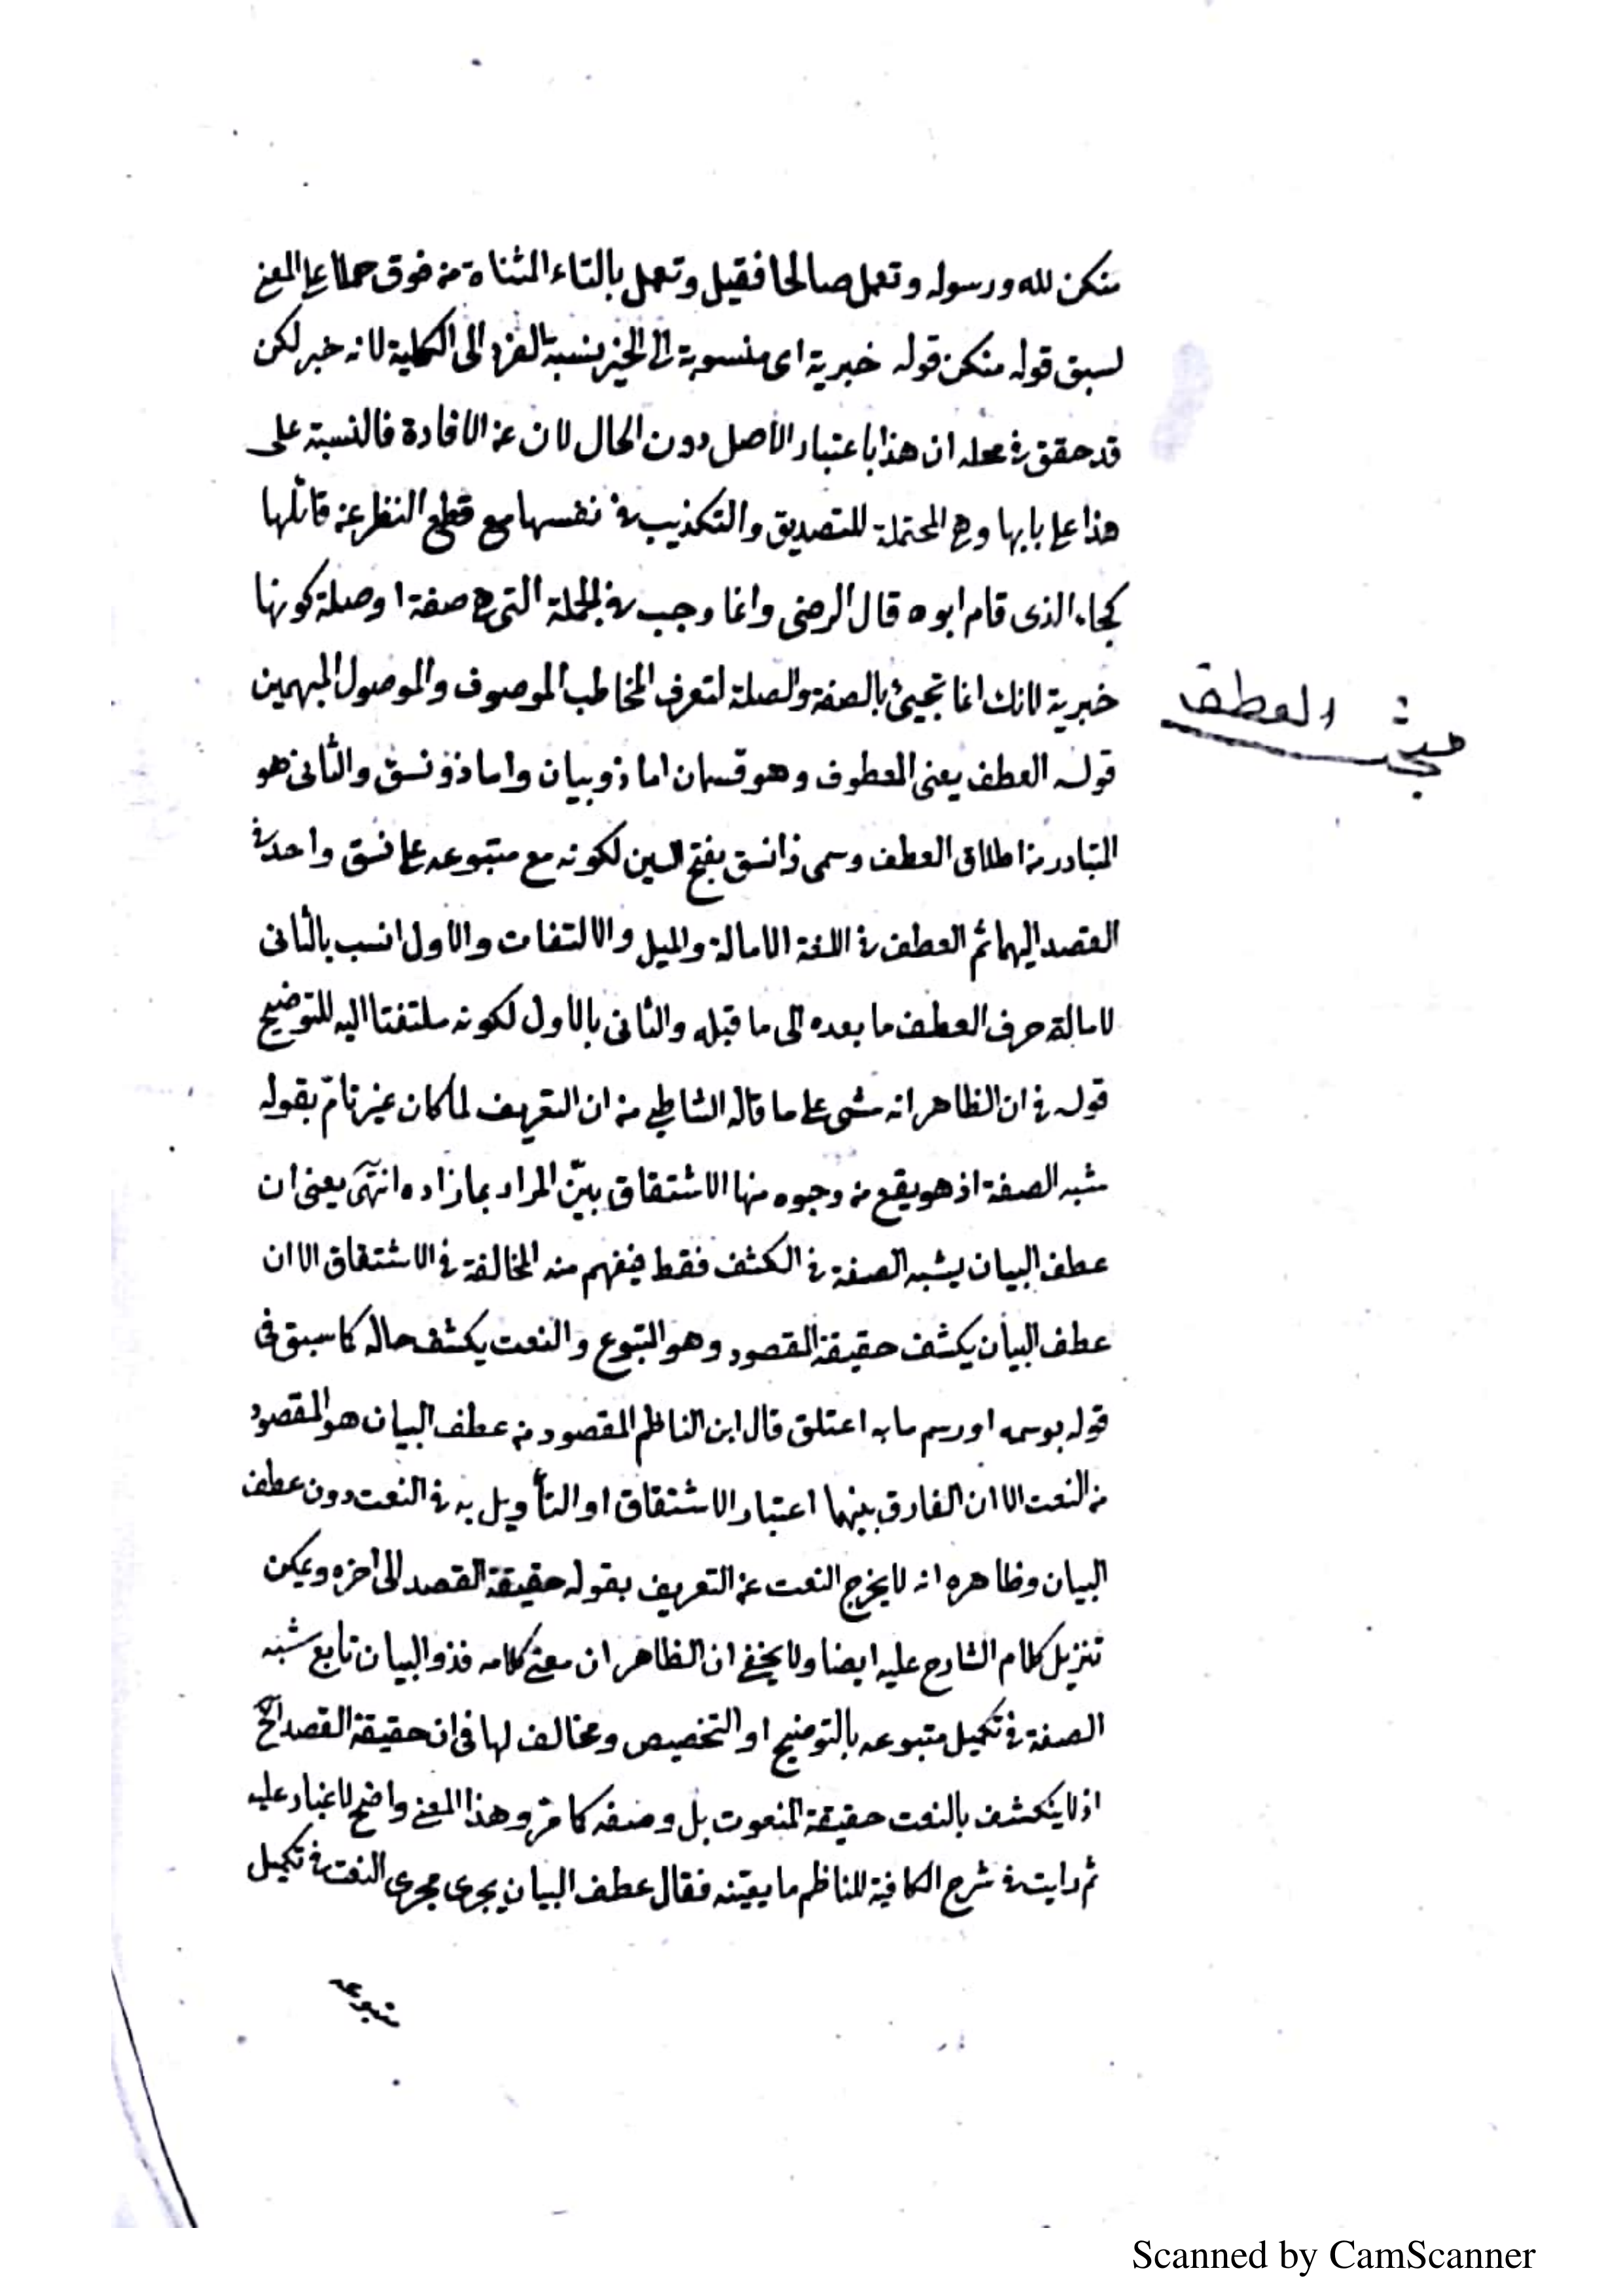 منكن لله ورسوله وتعمل صالحا فقيل وتعمل بالتاء المثناة من فوق حملا على المعنى
لسبق قوله منكن قوله خبرية اى منسوبة الى الخبر نسبة الفرد الى الكلية لانه خبر لكن
قد حقق فى محله ان هذا باعتبار الاصل دون الحال لان عن الافادة فالنسبة على
هذا على بابها وهى المحتملة للتصديق والتكذيب فى نفسها مع قطع النظر عن قائلها
كجاء الذى قام ابوه قال الرضى وانما وجب فى الجملة التى هى صفة او صلة كونها
خبرية لانك انما تجيئ بالصفة والصلة لتعرف المخاطب الموصوف والموصول المبهمين
مبحث العطف
قوله العطف يعنى المعطوف وهو قسمان اما ذو بيان واما ذو نسق والثانى هو
المتبادر من اطلاق العطف وسمى ذا نسق بفتح السين لكونه مع متبوعه على نسق واحد فى
القصد اليهما ثم العطف فى اللغة الامالة والميل والالتفات والاول انسب بالثانى
لامالة حرف العطف ما بعده الى ما قبله والثانى بالاول لكونه ملتفتا اليه للتوضيح
قوله فى ان الظاهر انه مشى على ما قاله الشاطبى من ان التعريف لما كان غير تامّ بقوله
شبه الصفة اذ هو يقع من وجوه منها الاشتقاق بيّن المراد بما زاده انتهى يعنى ان
عطف البيان يشبه الصفة فى الكشف فقط فيفهم منه المخالفة فى الاشتقاق الا ان
عطف البيان يكشف حقيقة المقصود وهو المتبوع والنعت يكشف حاله كما سبق فى
قوله بوسمه او رسم ما به اعتلق قال ابن الناظم المقصود من عطف البيان هو المقصود
من النعت الا ان الفارق بينهما اعتبار الاشتقاق او التأويل به فى النعت دون عطف
البيان وظاهره انه لا يخرج النعت عن التعريف بقوله حقيقة القصد الى اخره ويمكن
تنزيل كلام الشارح عليه ايضا ولا يخفى ان الظاهر ان معنى كلامه فذو البيان تابع شبه
الصفة فى تكميل متبوعه بالتوضيح او التخصيص ومخالف لها فى ان حقيقة القصد الخ
اذ لا ينكشف بالنعت حقيقة المنعوت بل وصفه كما مرّ وهذا المعنى واضح لا غبار عليه
ثم رايت فى شرح الكافية للناظم ما يعيّنه فقال عطف البيان يجرى مجرى النعت فى تكميل
متبوعه
Scanned by CamScanner